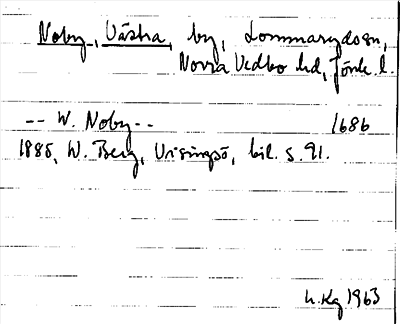 Noby, Västra, by, Lommarydssn,
Norra Vedbo hd, Jönk. l.
-- W. Noby --    1686
1885, W. Berg, Visingsö, bil. s. 91.
L. Kg 1963